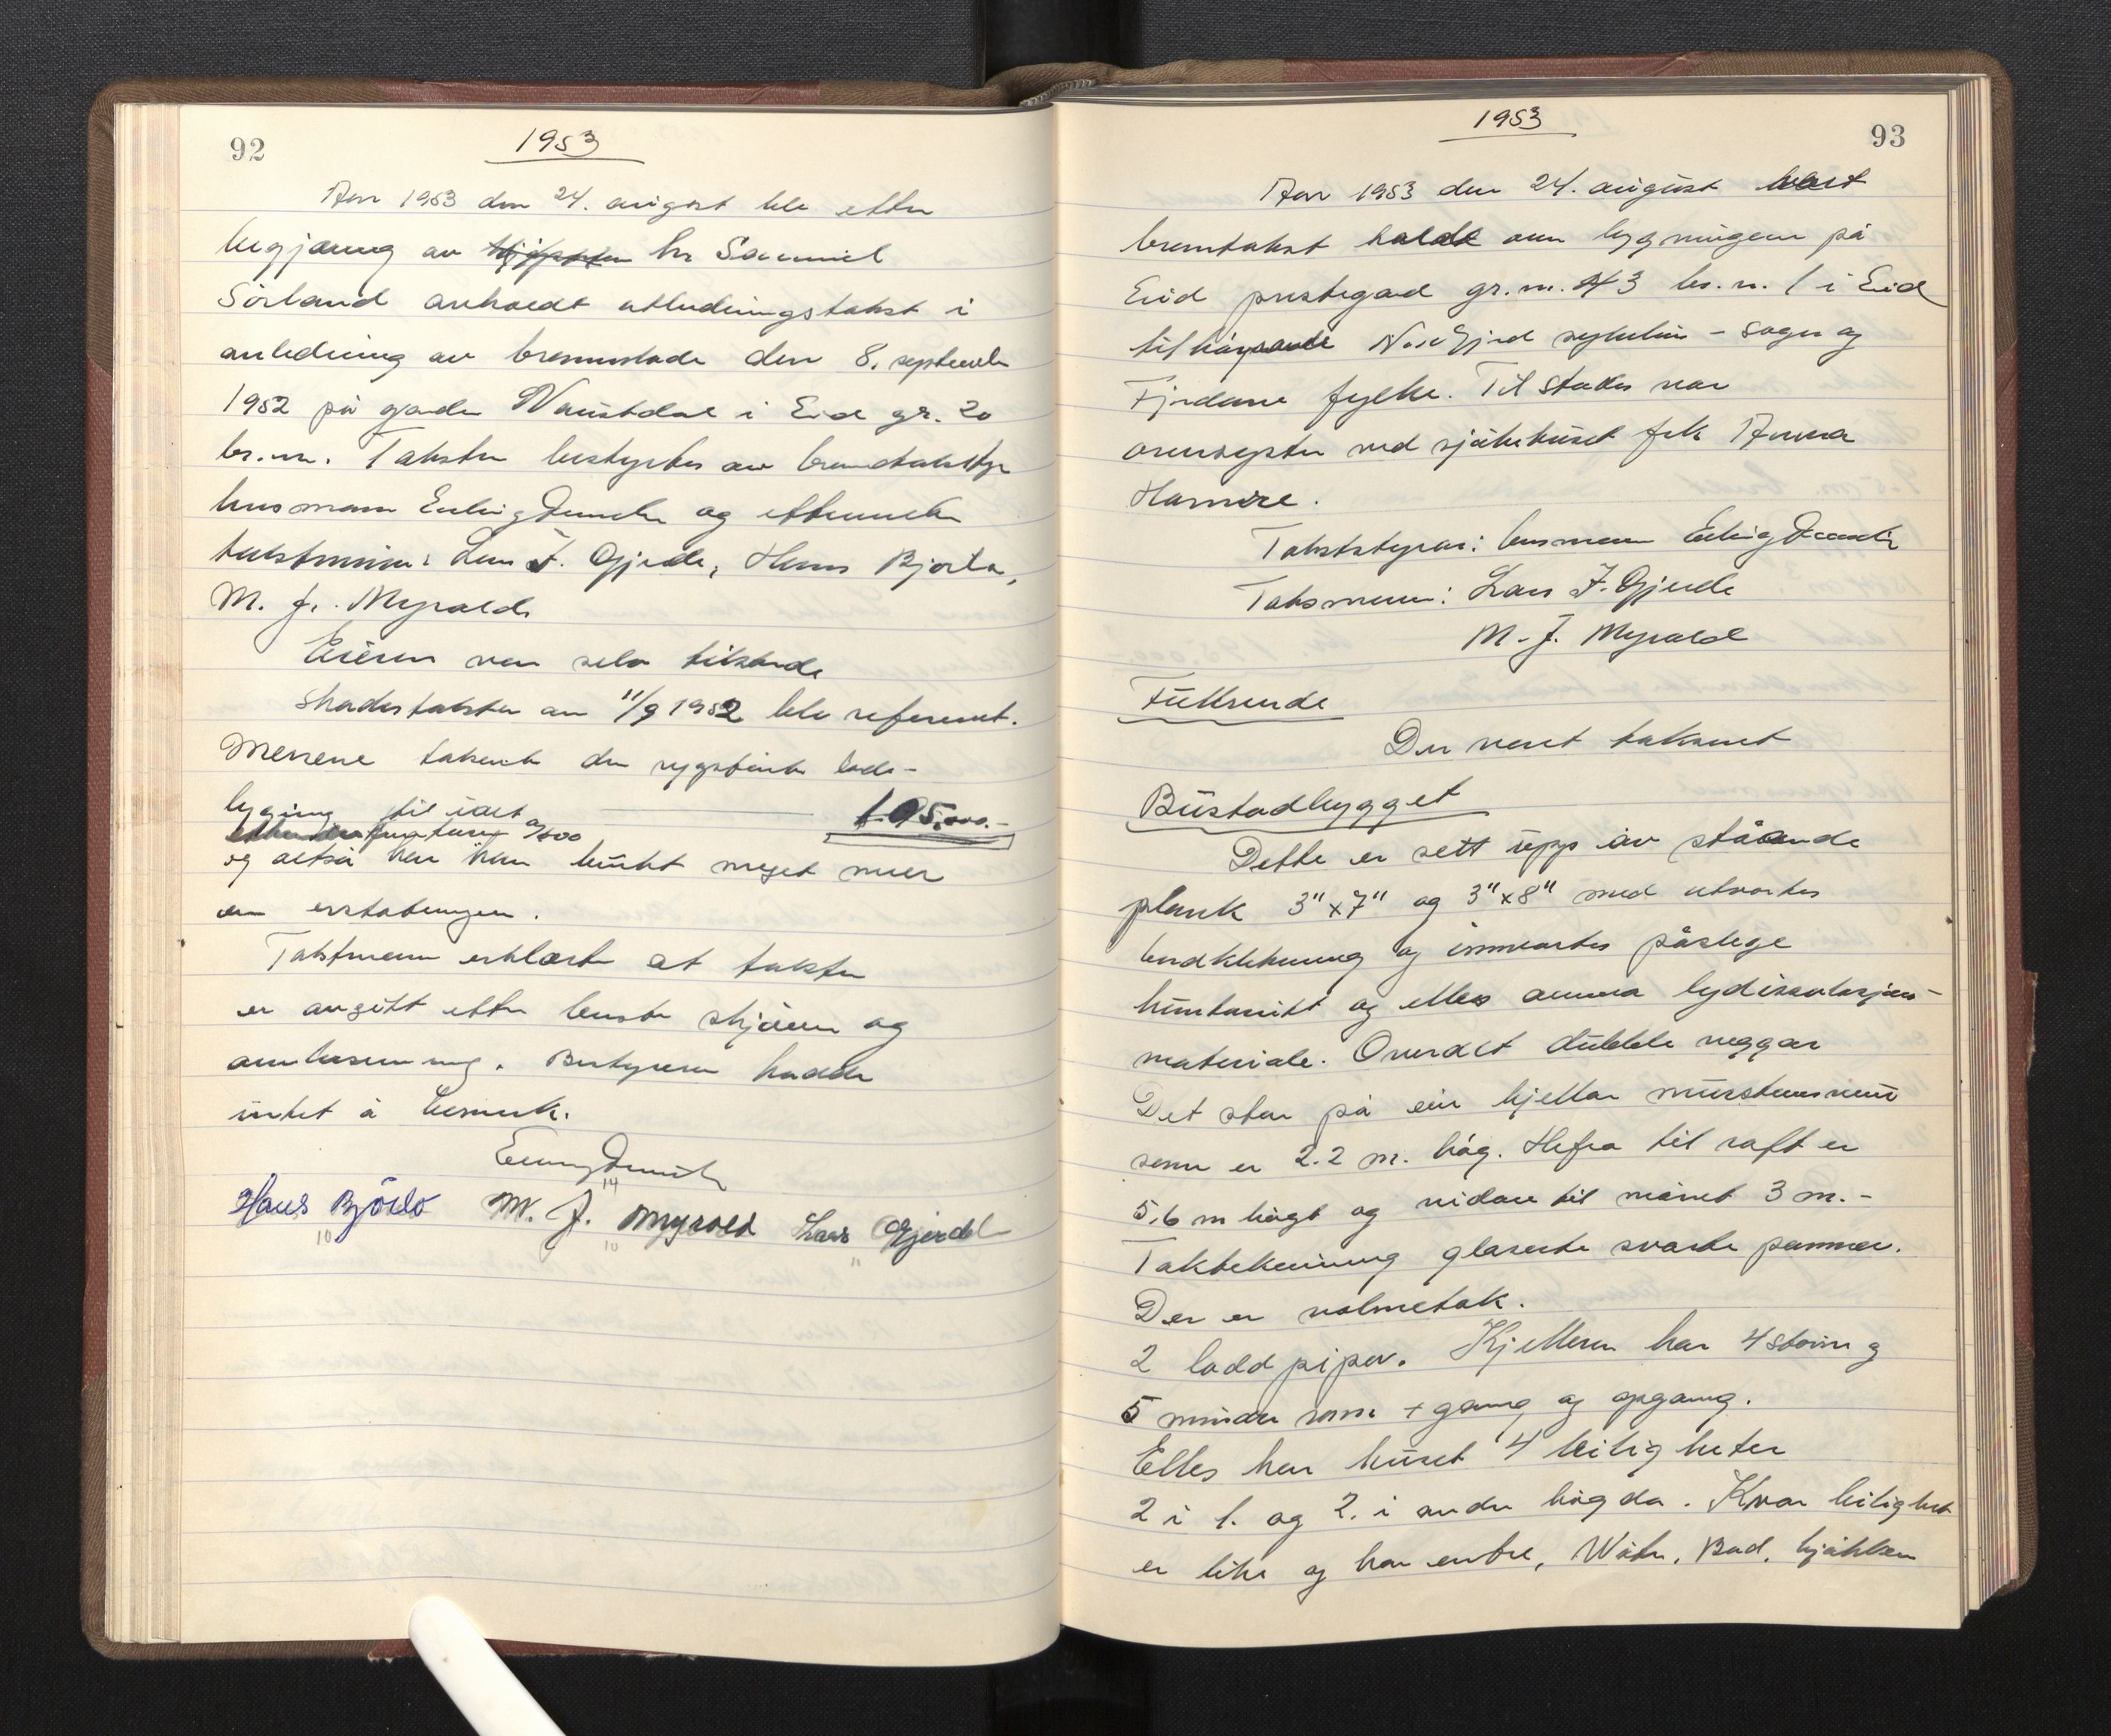 92
1953
Aar 1953 den 24. august ble etter
begjæring av hr Samuel
Sörland avholdt utludningstakst i
anledning av brannskade den 8. september
1952 på garden Naustdal i Eid gr. 20
br.nr. Taksten bestyrtes av branntakststy
lensmann Erling og ettnevnte
takstmenn: Lars J. Gjerde, Hans Bjørlo,
M. J. Myrold
Eieren var selv tilstede
Skadestaksten av 11/9 1952 ble referert.
Mennene takserte den nygstarte lade-
bygning til idet 195.000.-
og altså har han brukt meget mer
en erstatningen.
Takstmenn erklærte at taksten
er avgitt etter beste skjönn og
overbevisning. Bestyreren hadde
intet å bemerke.
Hans Björlo M. J. Myrold Lars Gjerde
1953
93
Aar 1953 den 24. august vart
branntakst haldt over bygningen på
Eid prestegard gr.nr. 43 br.n. 1 i Eid
tilhöyrande Nordfjord sjukehus - Sogn og
Fjordane fylke. Til stades var
oversyster ved sjukehuset frk Anna
Hamre.
Takststyrar: lensmann Erling
Taksmenn: Lars J. Gjerde
M. J. Myrold
Fullsende
Der vart taksert
Bustadbygget
Dette er sett upp av ståande
plank 3"x7" og 3"x8" med utvortes
bordkledning og innvortes påslege
huntonitt og elles anna lydisolasjons-
materiale. Overalt dubble veggar
Det star på ein kjellar murstensmur
som er 2.2 m. hög. Herfra til raft er
5,6 m högt og vidare til mönet 3 m.-
Taktekning glaserte svarte pannor.
Der er valmetak.
2 lodd piper. Kjelleren har 4 storim og
5 mindre rom + gang og opgang.
Elles har huset 4 leiligheter
2 i 1. og 2. i andre högda. Kvar leilighet
er like og har entre, Bad, kjökken